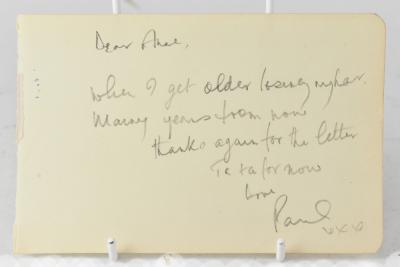 Dear Anne,
When I get older losing my hair.
Many years from now
thanks again for the letter
Ta ta for now
Love
Paul
xxx